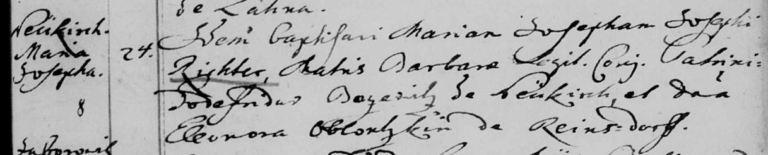 de Lahna.
Neükirch.
Maria
Josepha.
8
24. Idem baptisavi Mariam Josepham Josephi
Richter, Matris Barbara Legit. Conj. Patrini:
Godefridus de Neükirch, et Dna
Eleonora de Reinsdorff.